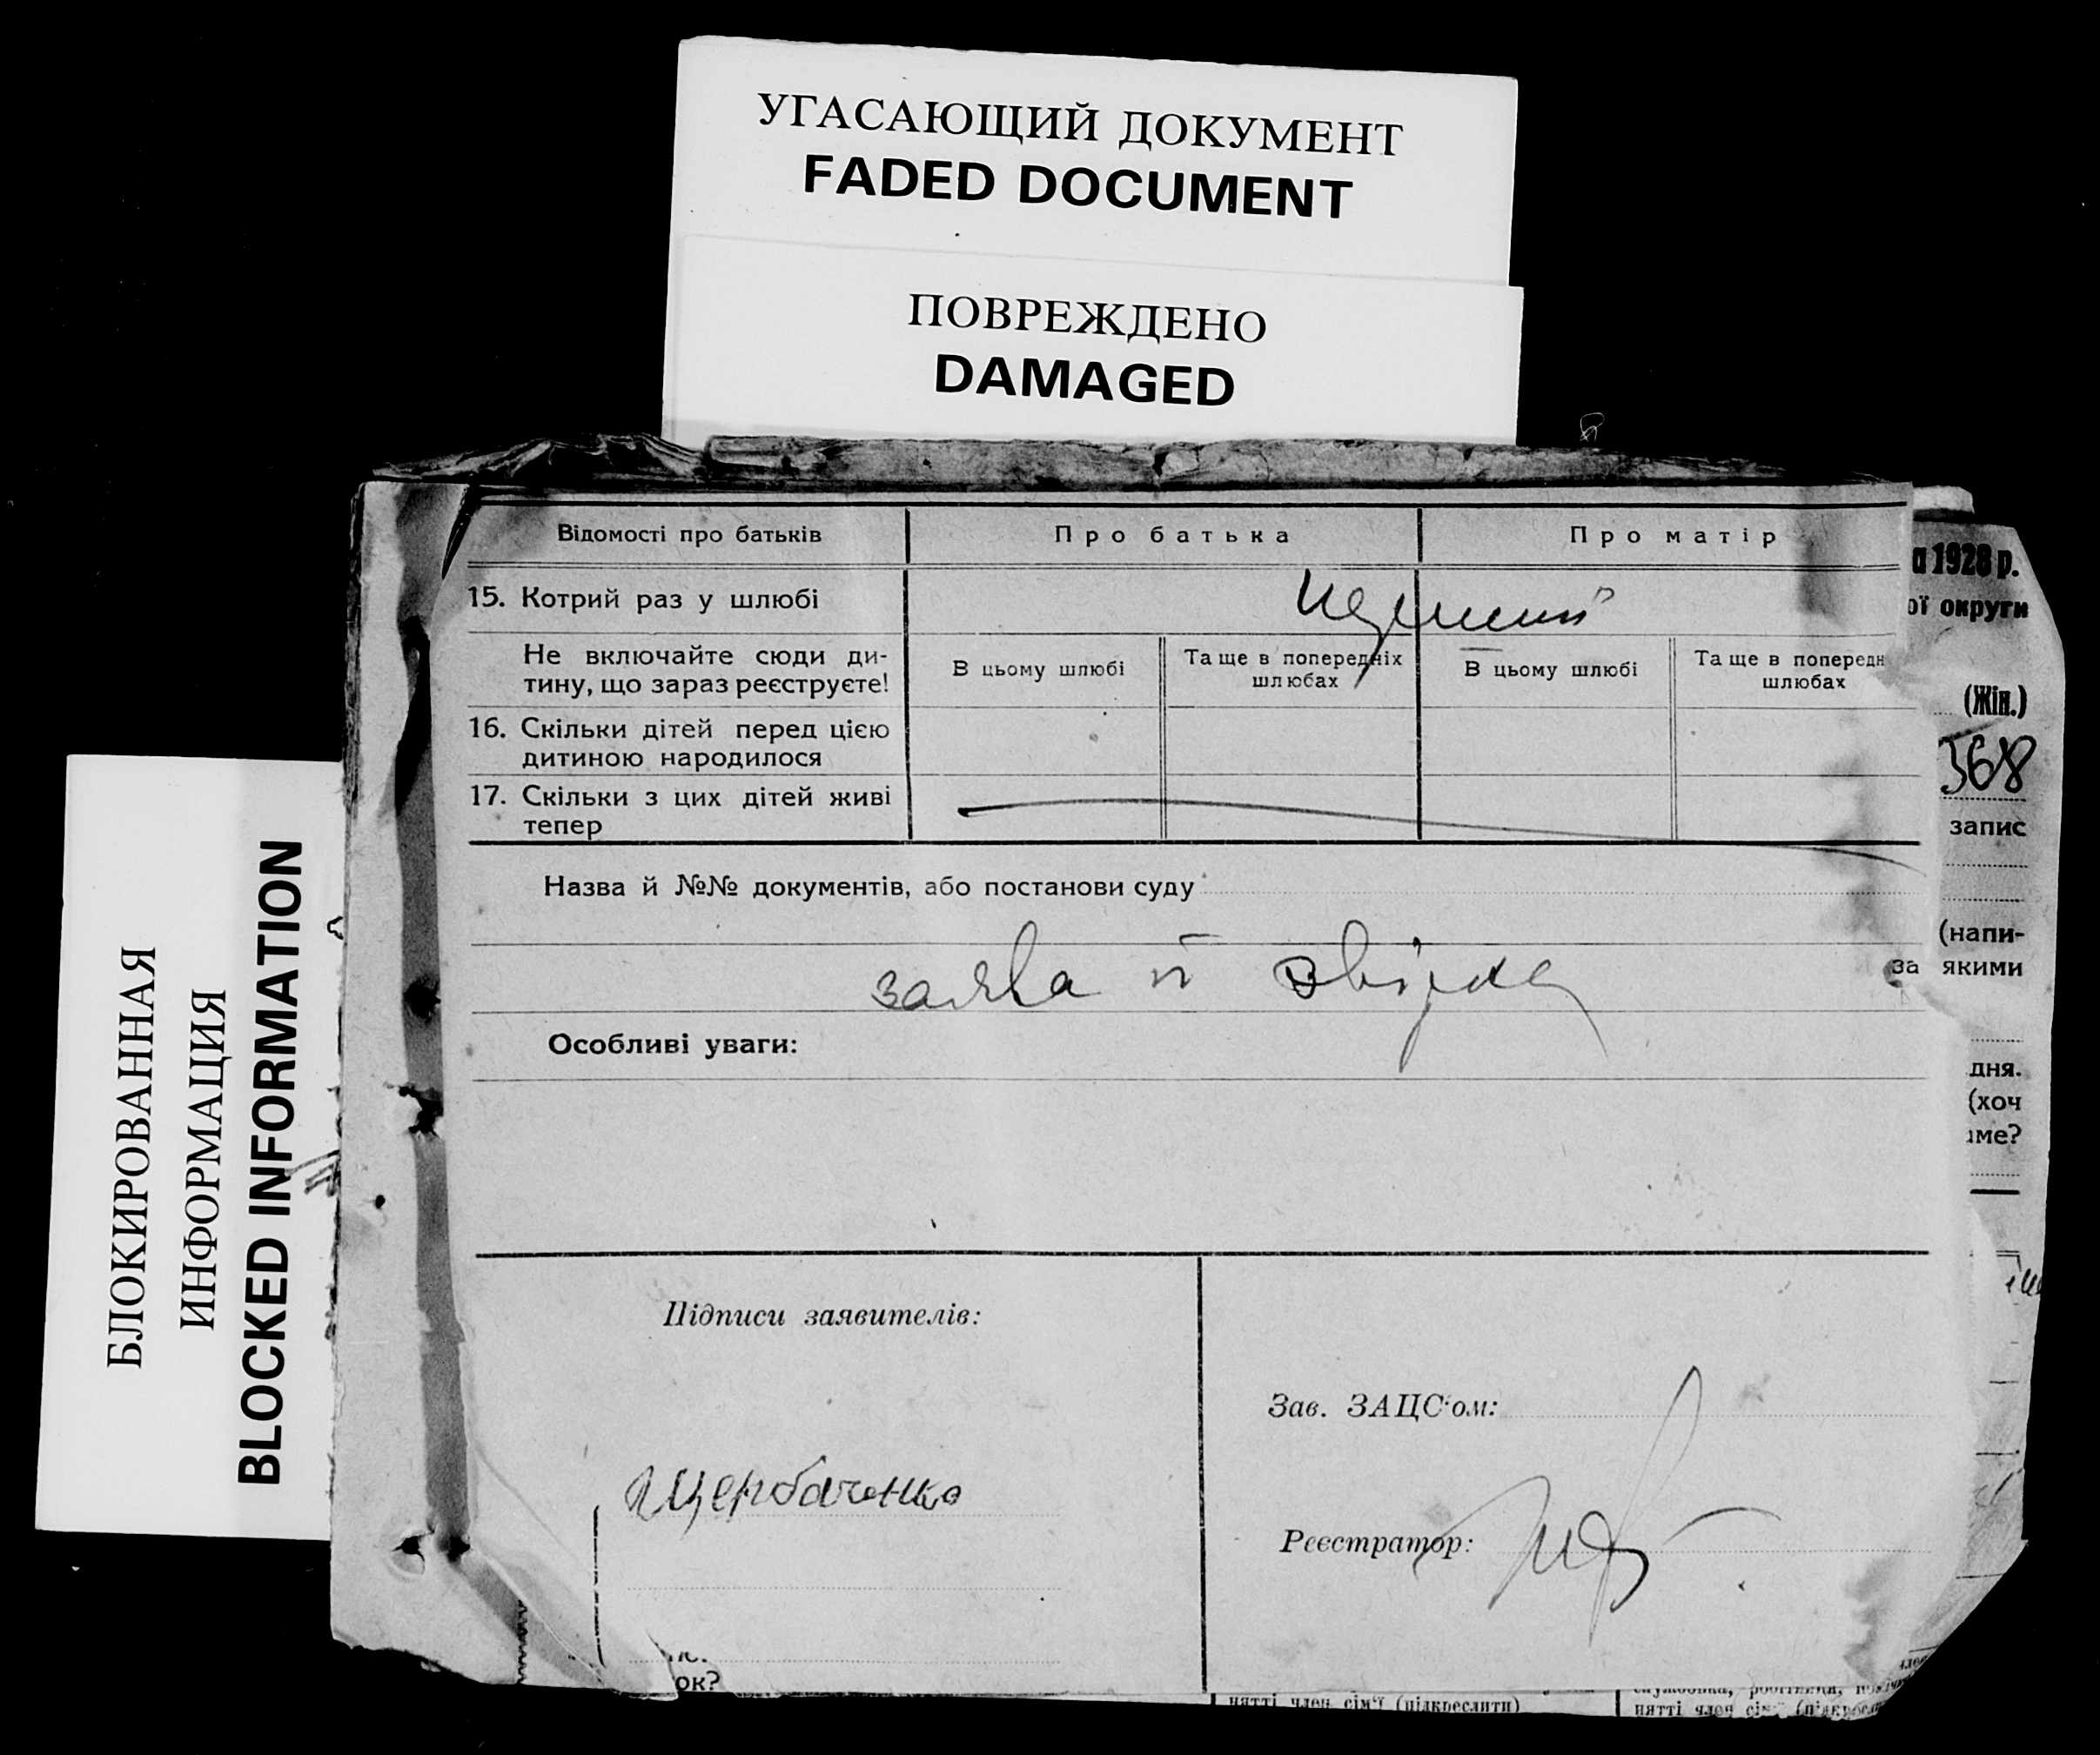 УГАСАЮЩИЙ ДОКУМЕНТ
FADED DOCUMENT
ПОВРЕЖДЕНО
DAMAGED
БЛОКИРОВАННАЯ
ИНФОРМАЦИЯ
BLOCKED INFORMATION
Відомості про батьків Про батька Про матір
15. Котрий раз у шлюбі
Не включайте сюди ди-
тину, що зараз реєструєте!
В цьому шлюбі
Та ще в попередніх
шлюбах
В цьому шлюбі
Та ще в попередн
шлюбах
16. Скільки дітей перед цією
дитиною народилося
17. Скільки з цих дітей живі
тепер
Назва й №№ документів, або постанови суду
заява й
Особливі уваги:
Підписи заявителів:
Щербаченко
Зав. ЗАЦС'ом:
Реєстратор:
а 1928 р.
ої округи
(Жін.)
368
запис
(напи-
за якими
дня.
(хоч
ме?
ок?
нятті член сім'ї (підкреслити)